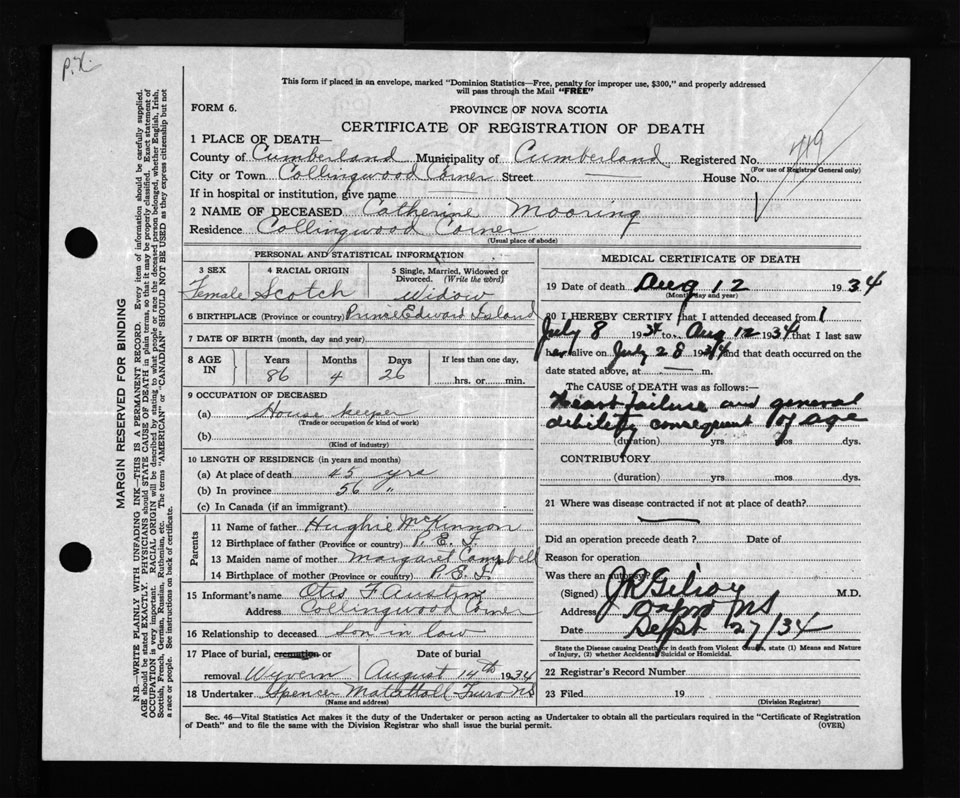 P.X.
This form if placed in an envelope, marked "Dominion Statistics—Free, penalty for improper use, $300," and properly addressed
will pass through the Mail "FREE"
FORM 6.
PROVINCE OF NOVA SCOTIA
CERTIFICATE OF REGISTRATION OF DEATH
1 PLACE OF DEATH—
County of Cumberland Municipality of Cumberland Registered No. 419
(For use of Registrar General only)
City or Town Collingwood Corner Street — House No.
If in hospital or institution, give name
2 NAME OF DECEASED Catherine Mooring
Residence Collingwood Corner
(Usual place of abode)
PERSONAL AND STATISTICAL INFORMATION
3 SEX Female
4 RACIAL ORIGIN Scotch
5 Single, Married, Widowed or Divorced. (Write the word) Widow
6 BIRTHPLACE (Province or country) Prince Edward Island
7 DATE OF BIRTH (month, day and year)
8 AGE IN Years 86 Months 4 Days 26 If less than one day, ......hrs. or ......min.
9 OCCUPATION OF DECEASED
(a) House keeper
(Trade or occupation or kind of work)
(b)
(Kind of industry)
10 LENGTH OF RESIDENCE (in years and months)
(a) At place of death 45 yrs
(b) In province 56 "
(c) In Canada (if an immigrant)
Parents
11 Name of father Hughie McKinnon
12 Birthplace of father (Province or country) P. E. I.
13 Maiden name of mother Margaret Campbell
14 Birthplace of mother (Province or country) P. E. I.
15 Informant's name Otis F Austin
Address Collingwood Corner
16 Relationship to deceased Son in law
17 Place of burial, cremation or removal Wyvern
Date of burial August 14th 1934
18 Undertaker Spencer Mattatall Truro NS
(Name and address)
MEDICAL CERTIFICATE OF DEATH
19 Date of death Aug 12 1934
(Month, day and year)
20 I HEREBY CERTIFY that I attended deceased from
July 8 1934 to Aug 12 1934 that I last saw
her alive on July 28 1934 and that death occurred on the
date stated above, at — m.
The CAUSE OF DEATH was as follows:—
Heart failure and general
debility consequent of age
(duration) yrs. mos. dys.
CONTRIBUTORY
(duration) yrs. mos. dys.
21 Where was disease contracted if not at place of death?
Did an operation precede death? Date of
Reason for operation
Was there an autopsy?
(Signed) J R Gilroy M.D.
Address Oxford NS
Date Sept 27/34
State the Disease causing Death, or in death from Violent Causes, state (1) Means and Nature
of Injury, (2) whether Accidental, Suicidal or Homicidal.
22 Registrar's Record Number
23 Filed 19
(Division Registrar)
Sec. 46—Vital Statistics Act makes it the duty of the Undertaker or person acting as Undertaker to obtain all the particulars required in the "Certificate of Registration
of Death" and to file the same with the Division Registrar who shall issue the burial permit. (OVER)
MARGIN RESERVED FOR BINDING
N.B.—WRITE PLAINLY WITH UNFADING INK—THIS IS A PERMANENT RECORD. Every item of information should be carefully supplied.
AGE should be stated EXACTLY. PHYSICIANS should STATE CAUSE OF DEATH in plain terms, so that it may be properly classified. Exact statement of
OCCUPATION is very important. RACIAL ORIGIN will be described by stating to what people or race the deceased person belonged, whether English, Irish,
Scottish, French, German, Russian, Ruthenian, etc. The terms "AMERICAN" or "CANADIAN" SHOULD NOT BE USED as they express citizenship but not
a race or people. See instructions on back of certificate.